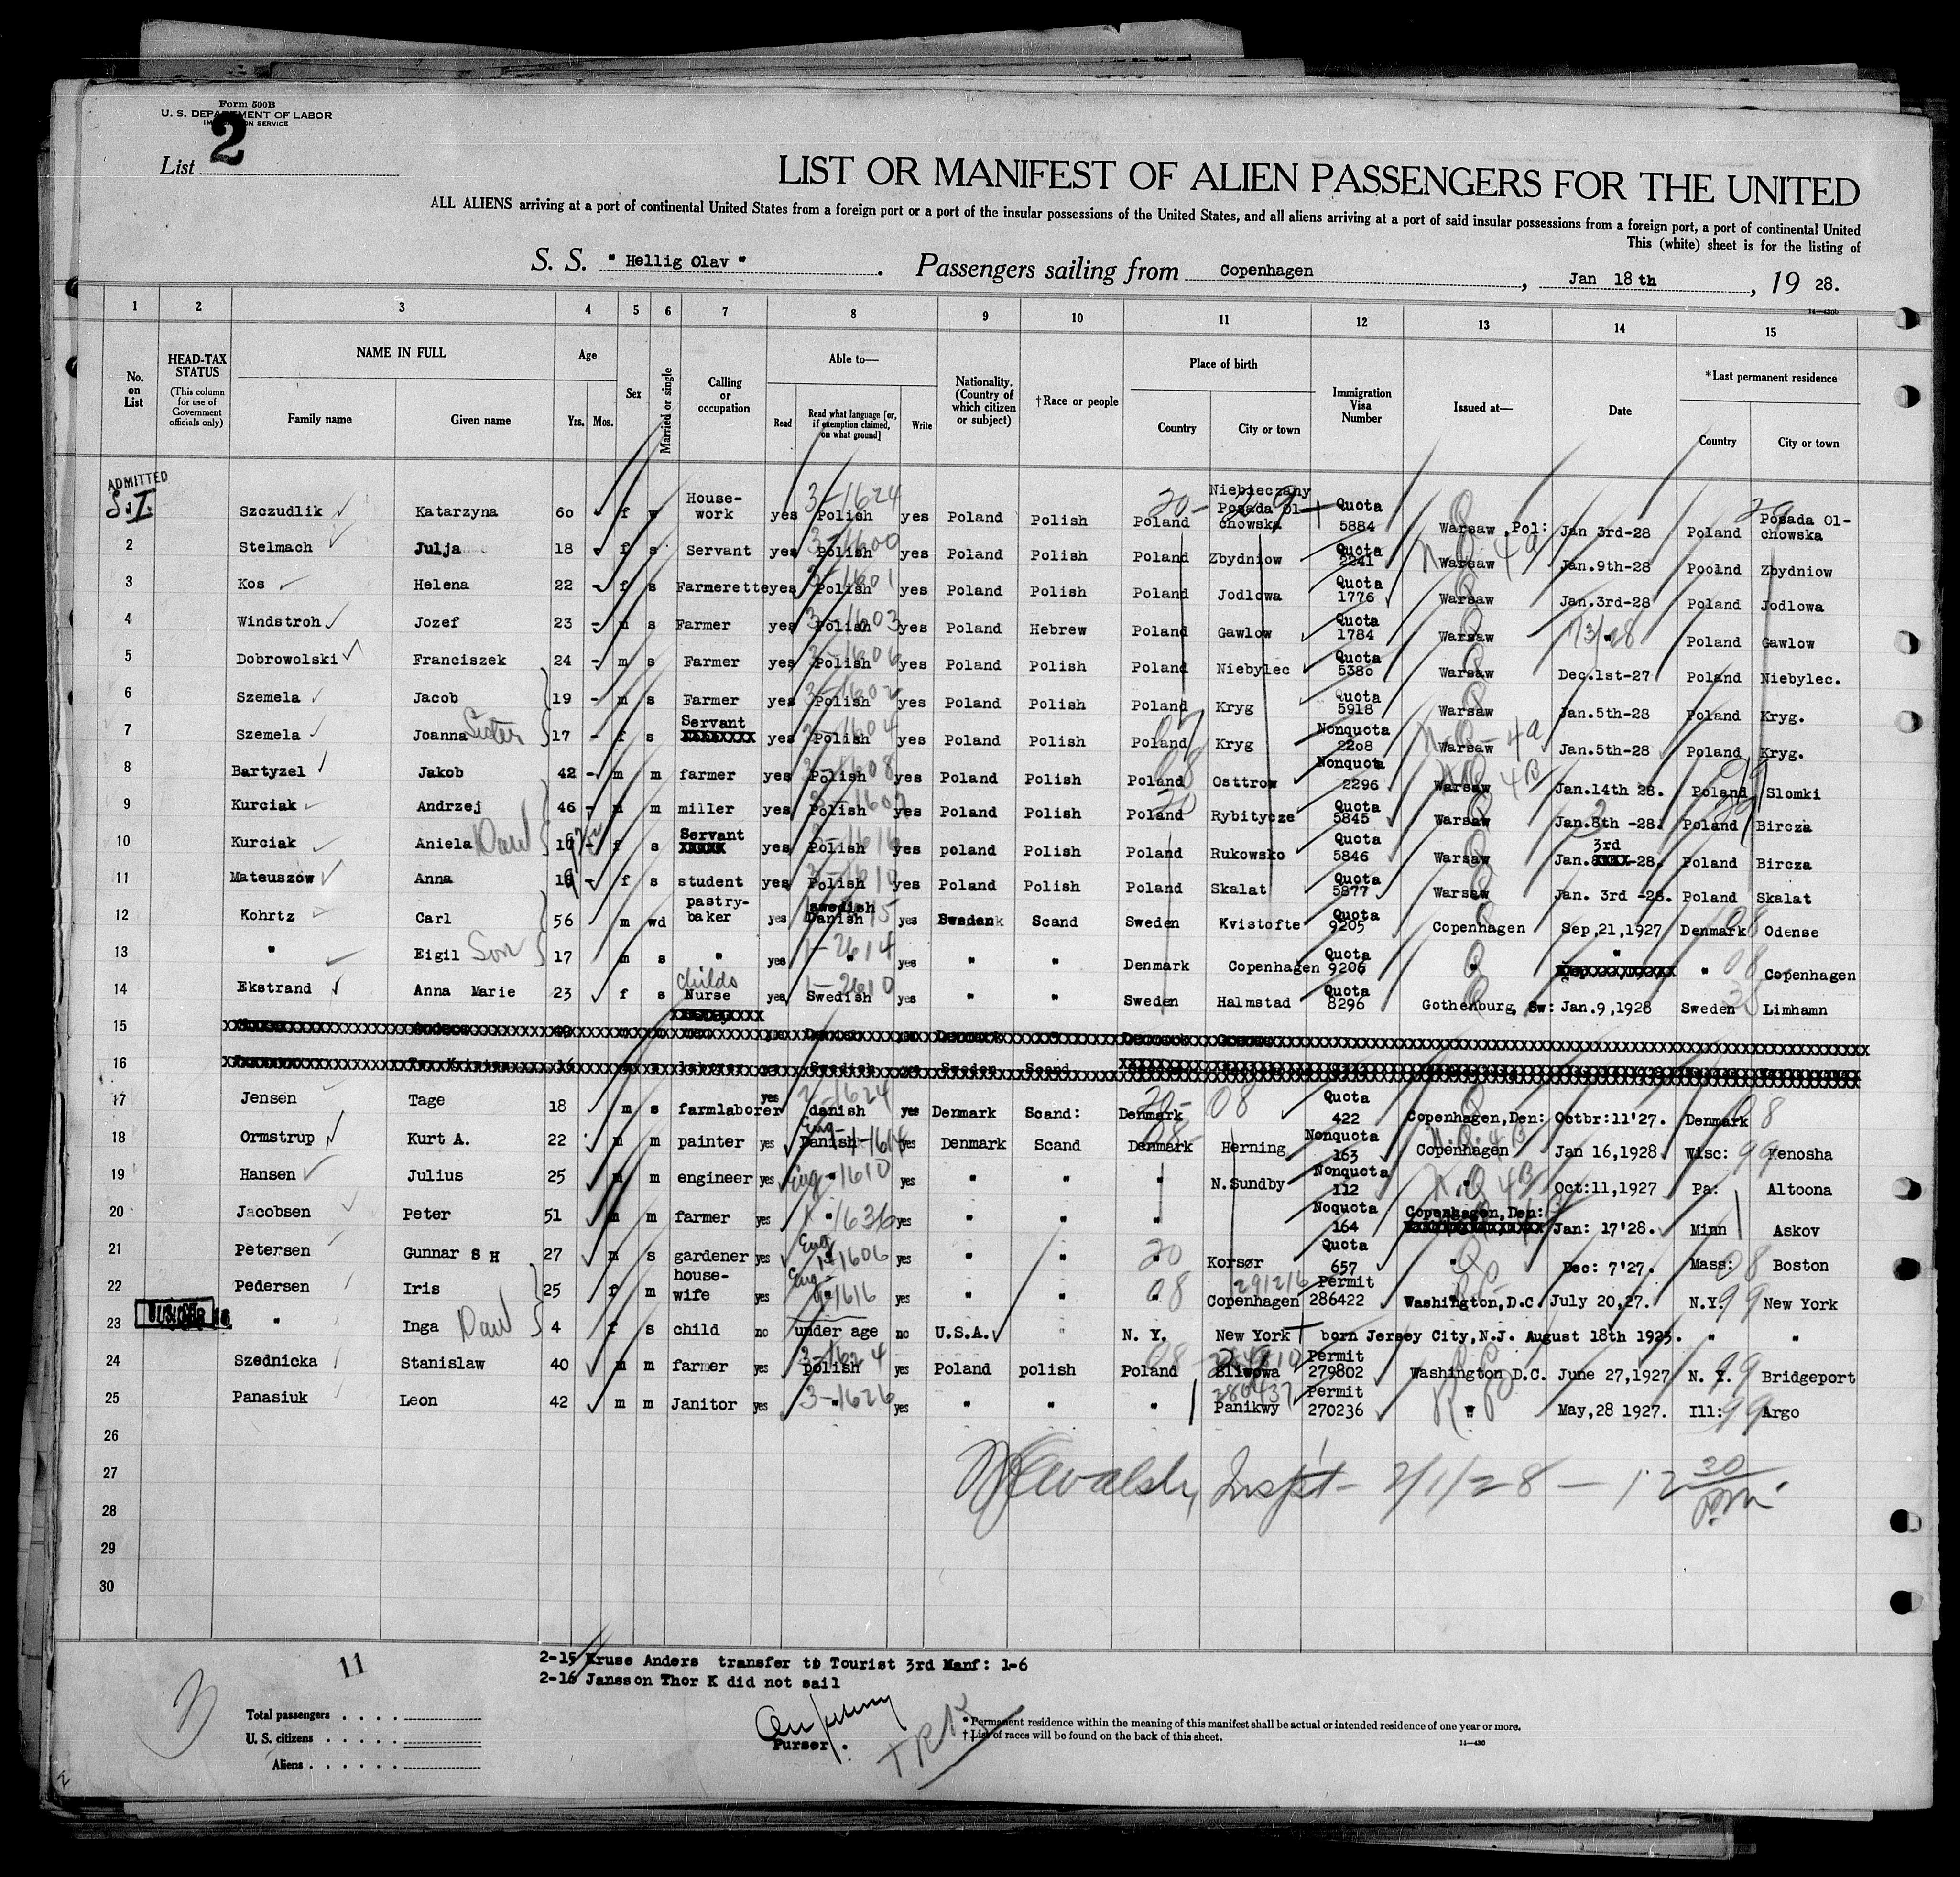 Form 500B
U. S. DEPARTMENT OF LABOR
IMMIGRATION SERVICE
List 2
LIST OR MANIFEST OF ALIEN PASSENGERS FOR THE UNITED
ALL ALIENS arriving at a port of continental United States from a foreign port or a port of the insular possessions of the United States, and all aliens arriving at a port of said insular possessions from a foreign port, a port of continental United
This (white) sheet is for the listing of
S. S. "Hellig Olav". Passengers sailing from Copenhagen, Jan 18th, 19 28.
14—430b
1 2 3 4 5 6 7 8 9 10 11 12 13 14 15
No. on List
HEAD-TAX STATUS (This column for use of Government officials only)
NAME IN FULL Family name Given name
Age Yrs. Mos.
Sex
Married or single
Calling or occupation
Able to— Read Read what language [or, if exemption claimed, on what ground] Write
Nationality. (Country of which citizen or subject)
†Race or people
Place of birth Country City or town
Immigration Visa Number
Issued at—
Date
*Last permanent residence Country City or town
ADMITTED
S.I. Szczudlik Katarzyna 60 f w House-work yes Polish 3-1624 yes Poland Polish Poland Niebieczany Posada Olchowska Quota 5884 Warsaw, Pol: Jan 3rd-28 Poland Posada Olchowska
2 Stelmach Julja 18 f s Servant yes Polish 3-1600 yes Poland Polish Poland Zbydniow Quota 2241 Warsaw Jan.9th-28 Poolnd Zbydniow
3 Kos Helena 22 - f s Farmerette yes Polish 3-1601 yes Poland Polish Poland Jodlowa Quota 1776 Warsaw Jan.3rd-28 Poland Jodlowa
4 Windstroh Jozef 23 - m s Farmer yes Polish 3-1603 yes Poland Hebrew Poland Gawlow Quota 1784 Warsaw " 1/3/28 Poland Gawlow
5 Dobrowolski Franciszek 24 - m s Farmer yes Polish 3-1606 yes Poland Polish Poland Niebylec Quota 5380 Warsaw Dec.1st-27 Poland Niebylec.
6 Szemela Jacob 19 - m s Farmer yes Polish 3-1602 yes Poland Polish Poland Kryg Quota 5918 Warsaw Jan.5th-28 Poland Kryg.
7 Szemela Joanna Sister 17 - f s Servant yes Polish 3-1604 yes Poland Polish Poland Kryg Nonquota 2208 Warsaw N.Q-4a Jan.5th-28 Poland Kryg.
8 Bartyzel Jakob 42 - m m farmer yes Polish 3-1608 yes Poland Polish Poland Osttrow Nonquota 2296 Warsaw NQ 4B Jan.14th 28. Poland Slomki
9 Kurciak Andrzej 46 - m m miller yes Polish yes Poland Polish Poland Rybitycze Quota 5845 Warsaw Jan.8th -28. Poland Bircza
10 Kurciak Aniela Dau - f s Servant yes Polish 3-1616 yes poland Polish Poland Rukowsko Quota 5846 Warsaw Jan. 3rd -28. Poland Bircza
11 Mateuszow Anna - f s student yes Polish 3-1610 yes Poland Polish Poland Skalat Quota 5877 Warsaw Jan. 3rd -28. Poland Skalat
12 Kohrtz Carl 56 m wd pastry-baker yes swedish Danish yes Sweden Scand Sweden Kvistofte Quota 9205 Copenhagen Sep,21,1927 Denmark 08 Odense
13 " Eigil Son 17 m s " yes " 1-2614 yes " " Denmark Copenhagen Quota 9206 " " " 08 Copenhagen
14 Ekstrand Anna Marie 23 f s childs Nurse yes Swedish 1-2610 yes " " Sweden Halmstad Quota 8296 Gothenburg, Sw: Jan.9,1928 Sweden Limhamn
15
16
17 Jensen Tage 18 m s farmlaborer yes danish yes Denmark Scand: Denmark 20- 08 Quota 422 Copenhagen,Den: Octbr:11'27. Denmark 08
18 Ormstrup Kurt A. 22 m m painter yes Eng- Danish yes Denmark Scand Denmark 08 Herning Nonquota 163 Copenhagen N.Q.4B Jan 16,1928 Wisc: 99 Kenosha
19 Hansen Julius 25 m m engineer yes Eng " 1610 yes " " " N.Sundby Nonquota 112 " N.Q 4B Oct:11,1927 Pa: Altoona
20 Jacobsen Peter 51 m m farmer yes " 1636 yes " " " Noquota 164 Copenhagen,Den: Jan: 17'28. Minn Askov
21 Petersen Gunnar S H 27 m s gardener yes Eng " 1606 yes " " " 20 Korsør Quota 657 " Dec: 7'27. Mass: 08 Boston
22 Pedersen Iris 25 f m house-wife yes Eng- " 1616 yes " " " 08 Copenhagen 291216 Permit 286422 Washington,D.C. July 20,27. N.Y. 99 New York
23 UNDER 16 " Inga Dau 4 f s child no under age no U.S.A. " N. Y. New York born Jersey City, N.J. August 18th 1923. " "
24 Szednicka Stanislaw 40 m m farmer yes polish 3-1624 yes Poland polish Poland 08 Sliwowa Permit 279802 Washington D.C. June 27,1927 N. Y. 99 Bridgeport
25 Panasiuk Leon 42 m m Janitor yes " 3-1626 yes " " " Panikwy 280437 Permit 270236 " May,28 1927. Ill: 99 Argo
26
27 Walsh, Inspt- 2/1/28 - 12 30 p.m.
28
29
30
11
2-15 Kruse Anders transfer to Tourist 3rd Manf: 1-6
2-16 Jansson Thor K did not sail
Total passengers
U. S. citizens
Aliens
Purser.
* Permanent residence within the meaning of this manifest shall be actual or intended residence of one year or more.
† List of races will be found on the back of this sheet.
14—430